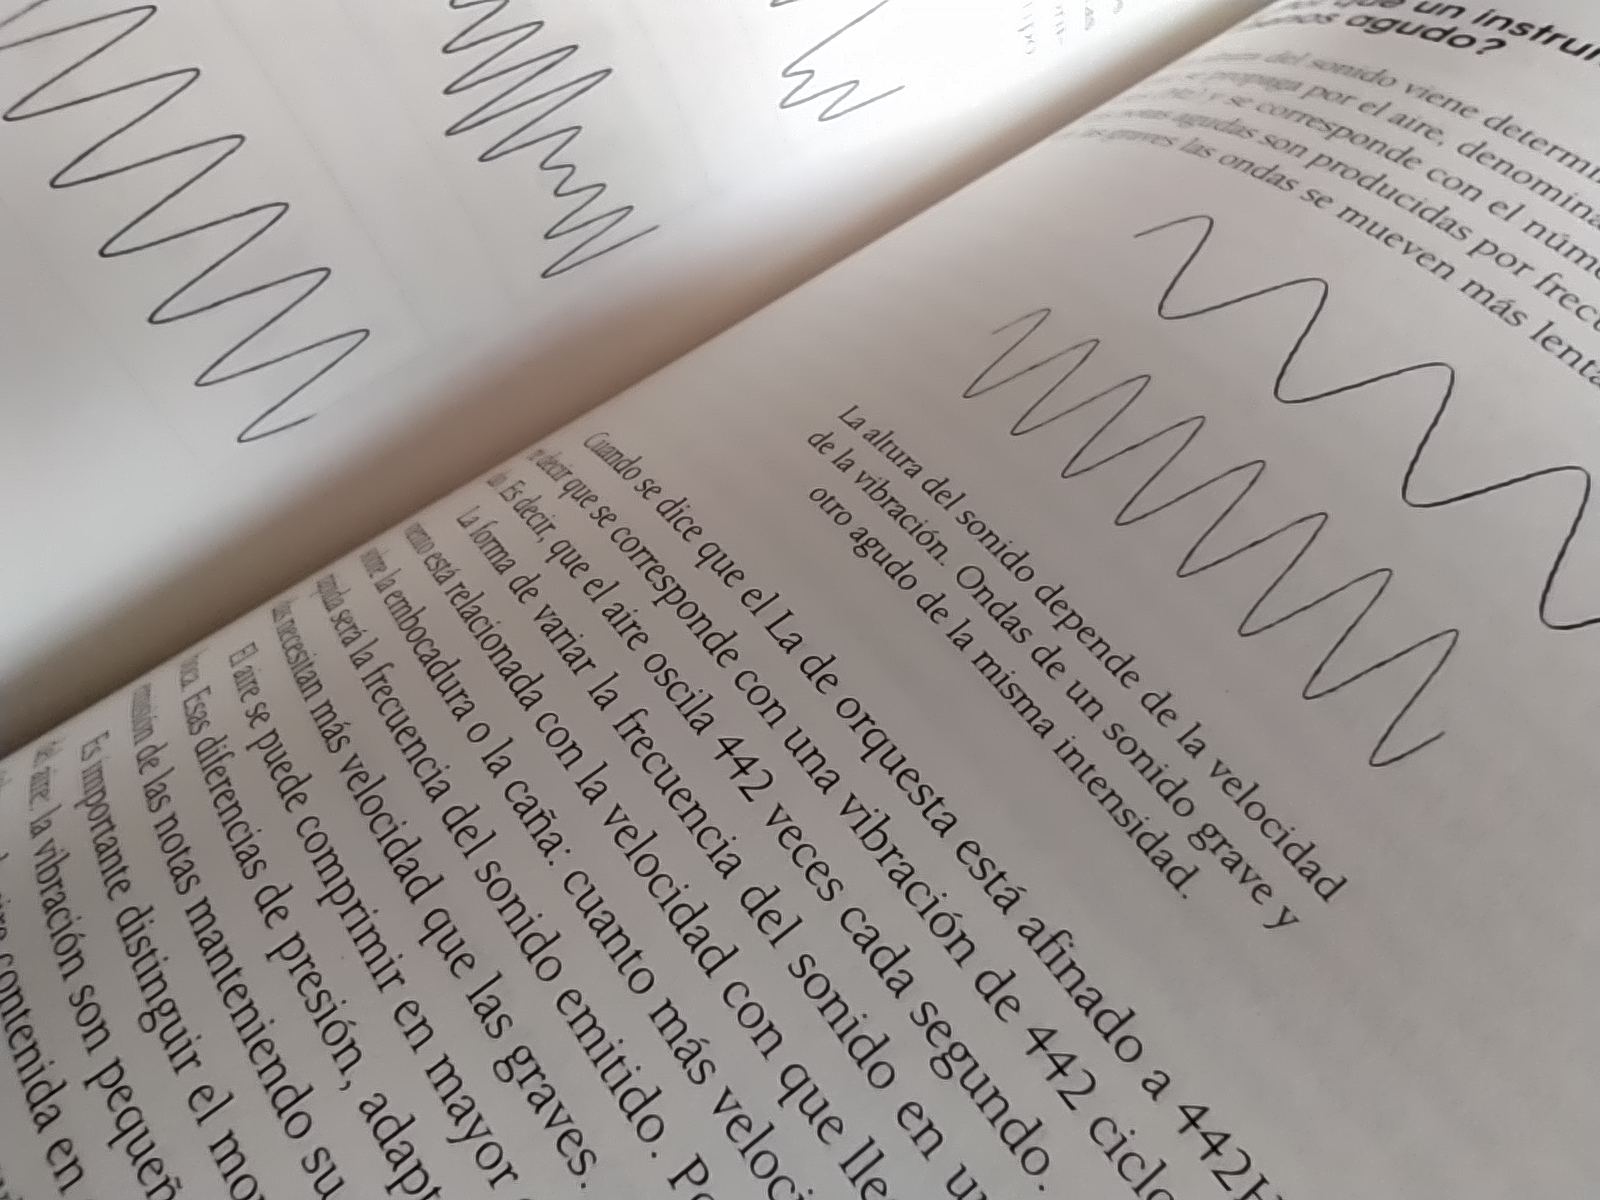 un instru
agudo?
del sonido viene determi
se propaga por el aire, denomina
y se corresponde con el núm
agudas son producidas por frec
graves las ondas se mueven más lent
La altura del sonido depende de la velocidad
de la vibración. Ondas de un sonido grave y
otro agudo de la misma intensidad.
Cuando se dice que el La de orquesta está afinado a 442H
decir que se corresponde con una vibración de 442 ciclo
Es decir, que el aire oscila 442 veces cada segundo.
La forma de variar la frecuencia del sonido en u
está relacionada con la velocidad con que lle
la embocadura o la caña: cuanto más veloci
será la frecuencia del sonido emitido. Po
necesitan más velocidad que las graves.
El aire se puede comprimir en mayor
boca. Esas diferencias de presión, adapt
emisión de las notas manteniendo su
Es importante distinguir el mo
del aire, la vibración son pequeñ
contenida en